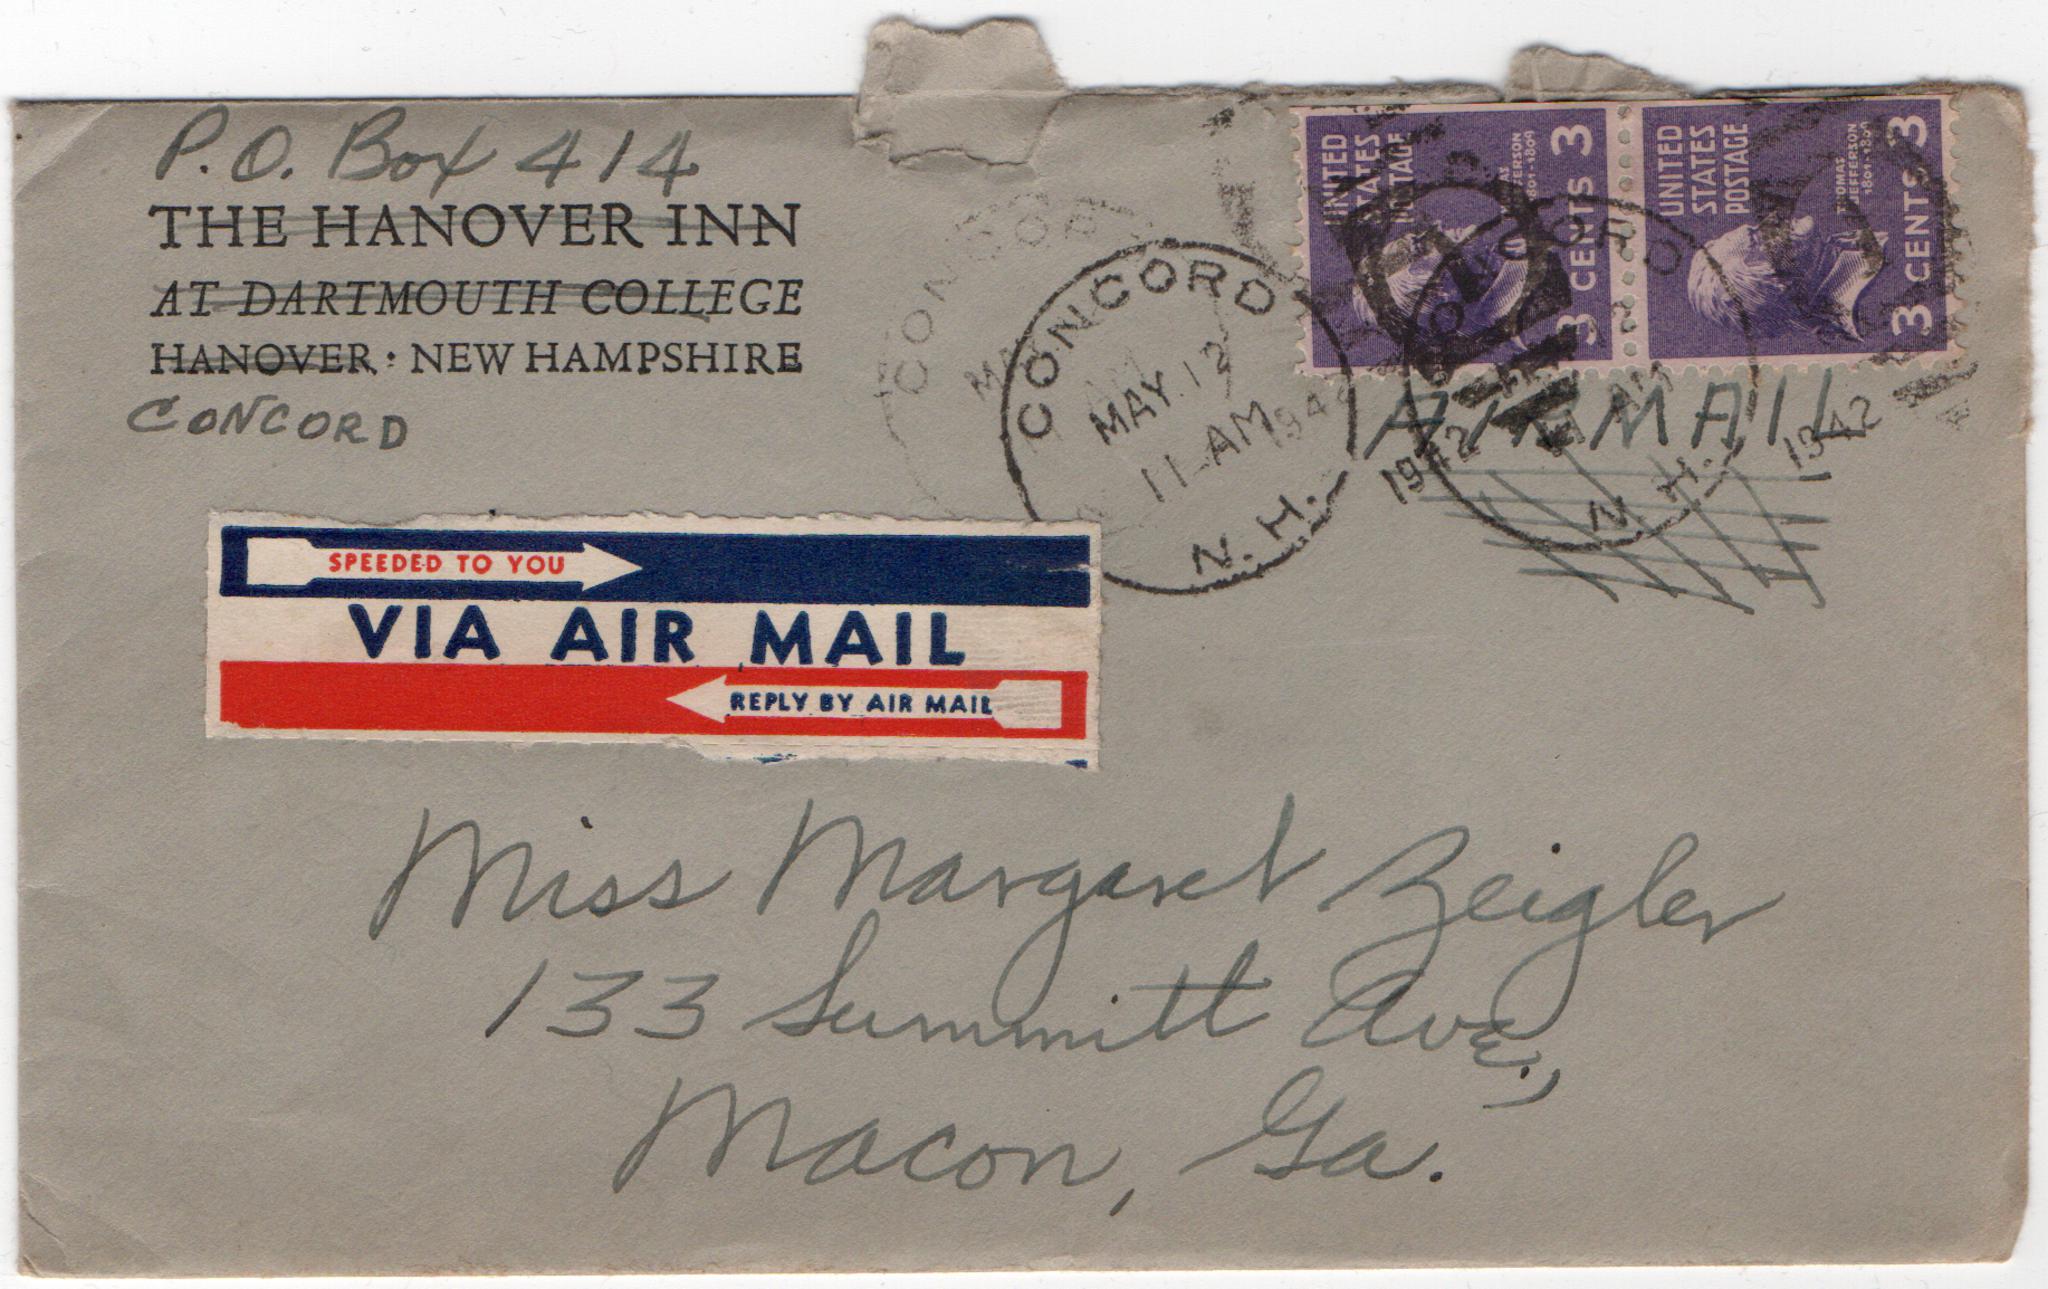 P.O. Box 414
THE HANOVER INN
AT DARTMOUTH COLLEGE
HANOVER : NEW HAMPSHIRE
CONCORD
CONCORD
MAY. 12
11 - AM
1942
N.H.
UNITED
STATES
POSTAGE
THOMAS
JEFFERSON
1801-1809
3 CENTS 3
UNITED
STATES
POSTAGE
THOMAS
JEFFERSON
1801-1809
3 CENTS 3
CONCORD
N.H.
1942
AIRMAIL
SPEEDED TO YOU
VIA AIR MAIL
REPLY BY AIR MAIL
Miss Margaret Zeigler
133 Summitt Ave.,
Macon, Ga.